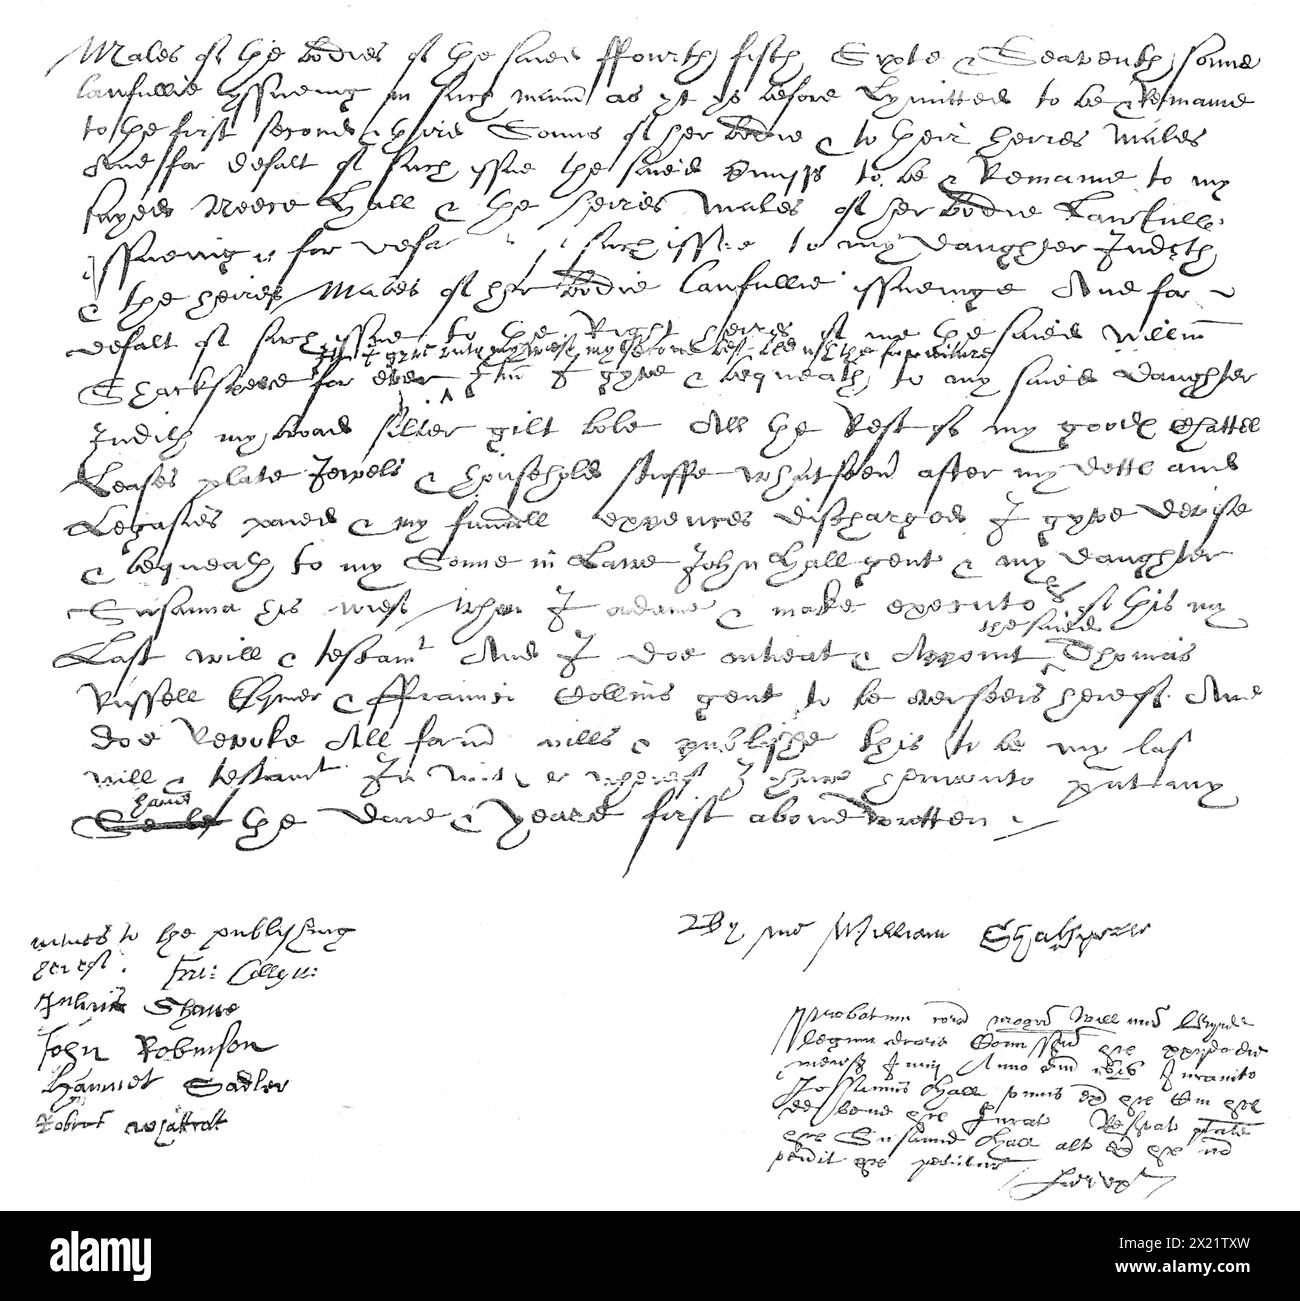 Males of the bodies of the saied ffourth fifth Sixte & Seaventh sonne
lawfullie yssueing in such mannr as yt ys before Lymitted to be & Remaine
to the first second & third Sonns of her bodie & to their heires Males
And for defalt of such issue the said premisses to be & Remaine to my
sayed Neece Hall & the heires Males of her bodie Lawfully
yssueing & for defa such issue to my daughter Judith
& the heires Males of her bodie lawfullie issueinge And for
defalt of such issue to the Right heires of me the saied willm
Itm I gyve unto my wief my second best bed wth the furniture
Shackspeare for ever Itm I gyve & bequeath to my saied daughter
Judith my broad silver gilt bole All the Rest of my goodes Chattel
Leases plate Jewels & household stuffe whatsoever after my dettes and
Legasies paied & my funerall expences discharged I gyve devise
& bequeath to my Sonne in Lawe John Hall gent & my daughter
Susanna his wief whom I ordaine & make executors of this my
the saied
Last will & testamt And I doe intreat & Appoint Thomas
Russell Esquier & ffrauncis Collins gent to be overseers hereof And
doe Revoke All former wills & publishe this to be my last
will & testamt In witnes whereof I have hereunto put my
hand
Seale the daie & Yeare first above written
witnes to the publishing
hereof. Fra: Collyns
Julius Shawe
John Robinson
Hamnet Sadler
Robert Whattcott
By me William Shakspeare
Probatum coram Willm
legum doctore Comissario
mensis Junij Anno dni 1616 Juramto
Johannis Hall
de bene Jurat Reservat ptate
Susanne Hall alt
petitur
alamy
Image ID: 2X21TXW
www.alamy.com